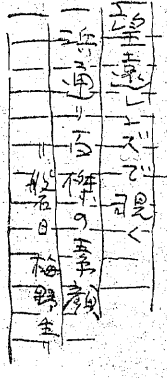 望遠レンズで覗く
浜通り百様の素顔
〃 梅野生